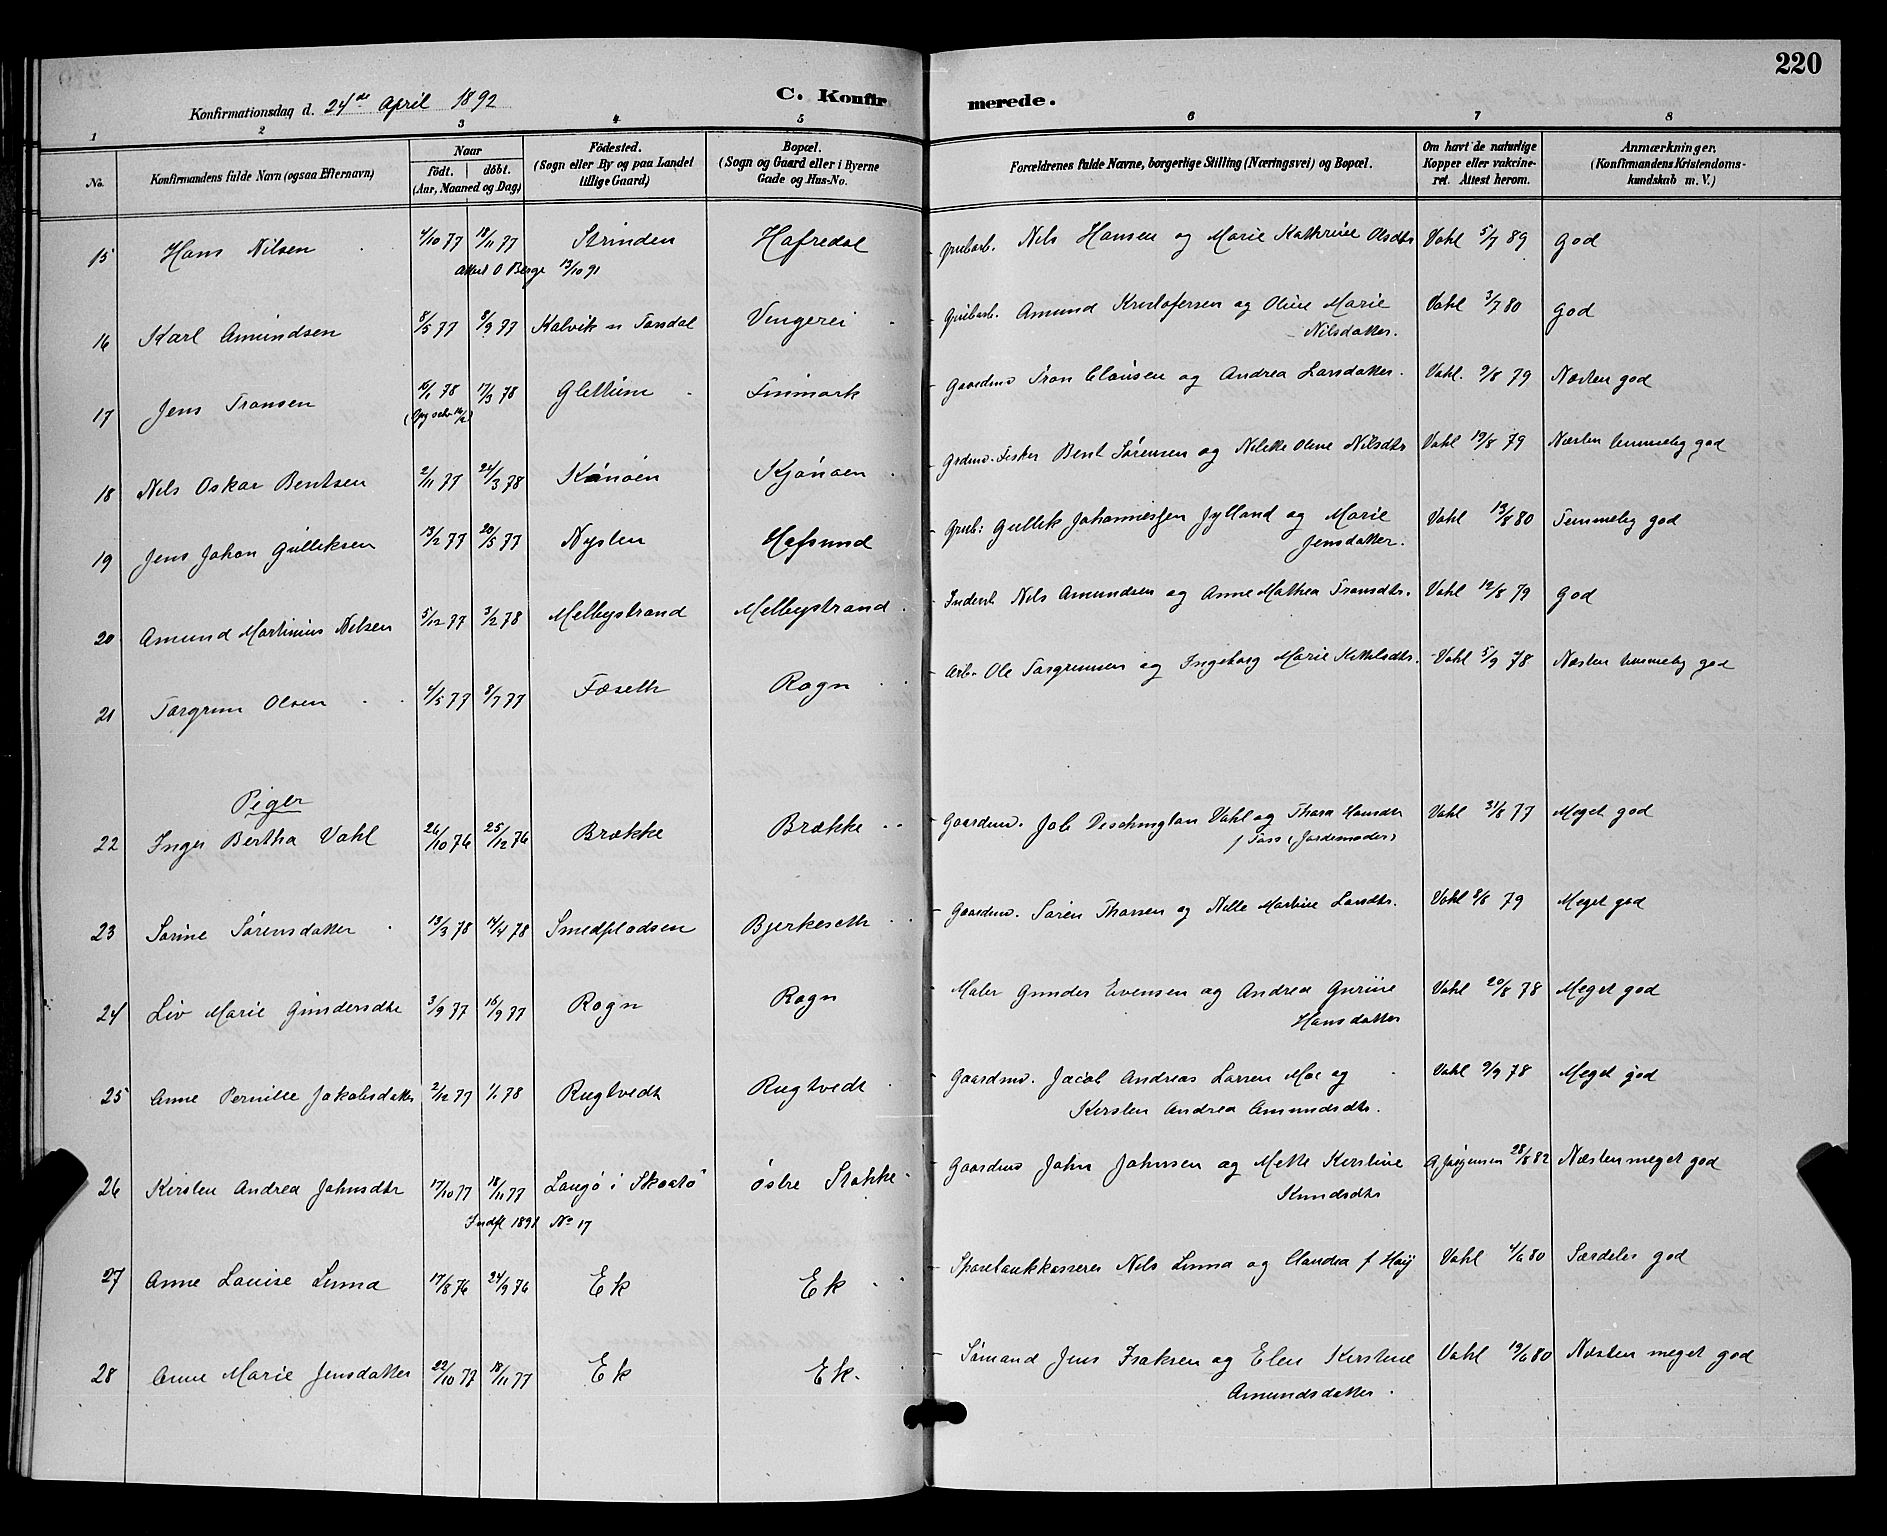 220
Konfirmationsdag d. 24de April 1892
C. Konfirmerede.
1 2 3 4 5 6 7 8
No. Konfirmandens fulde Navn (ogsaa Efternavn) Naar født. døbt. (Aar, Maaned og Dag) Fødested. (Sogn eller By og paa Landet tillige Gaard) Bopæl. (Sogn og Gaard eller i Byerne Gade og Hus-No. Forældrenes fulde Navne, borgerlige Stilling (Næringsvei) og Bopæl. Om havt de naturlige Kopper eller vakcineret. Attest herom. Anmærkninger. (Konfirmandens Kristendomskundskab m. V.)
15 Hans Nilsen 4/10 77 18/11 77 Strinden Hafredal Grubarb. Nils Hansen og Marie Kathrine Olsdtr Vahl 5/7 89 God
Attest O Berge 13/10 91
16 Karl Amundsen 8/5 77 8/9 77 Kalvik u Tandal Vingerei Grubarb. Amund Kristofersen og Oline Marie Vahl 3/7 80 God
Nilsdatter.
17 Jens Tronsen 16/1 78 17/3 78 Glittum Finmark Gaardmd Tron Clausen og Andrea Larsdatter. Vahl. 9/8 79 Næsten god
18 Nils Oskar Bentsen 2/11 77 24/3 78 Kjønøen Grdmd. Fisker Bent Sørensen og Nilikke Oline Nilsdtr Vahl 19/8 79 Næsten temmelig god
19 Jens Johan Gulliksen 13/2 77 20/5 77 Nysten Hafsund Grub: Gullik Johannessen Jylland og Marie Vahl 13/8 80 Temmelig god
Jensdatter.
20 Amund Martinius Nilsen 5/12 77 3/2 78 Melbystrand Melbystrand Inderst Nils Amundsen og Anne Mathea Tronsdtr. Vahl 12/8 79 God
21 Torgrim Olsen 4/5 77 8/7 77 Fæseth Rogn Arb. Ole Torgrimsen og Ingeborg Marie Kittilsdtr. Vahl 5/9 78 Næsten temmelig god
Piger
22 Inger Bertha Vahl 26/10 76 25/12 76 Brække Brække Gaardmd. Job Dischington Vahl og Thora Hansdtr Vahl 31/8 77 Meget god
f Tass (Jordemoder)
23 Sørine Sørensdatter 13/3 78 14/4 78 Smedpladsen Bjerkeseth Gaardmd. Søren Thorsen og Nille Martine Larsdtr. Vahl 8/8 79 Meget god
24 Liv Marie Gundersdtr 3/9 77 16/9 77 Rogn Rogn Maler Gunder Evensen og Andrea Gurine Vahl 20/8 78 Meget god
Hansdatter
25 Anne Pernille Jakobsdatter 2/12 77 1/1 78 Rugtvedt Rugtvedt Gaardmd. Jacob Andreas Larsen Moe og Vahl 9/9 78 Meget god
Kirsten Andrea Amundsdtr.
26 Kirsten Andrea Johnsdtr 17/10 77 18/11 77 Langø i Skaatø Østre Stokke Gaardmd John Johnsen og Mette Kirstine A Jørgensen 28/8 82 Næsten meget god
Knudsdtr
Indfl 1891 No 17
27 Anne Louise Linna 17/8 76 24/9 76 Ek Ek Sparebankkasserer Nils Linna og Claudea f Høy Vahl 4/6 80 Særdeles god
28 Anne Marie Jensdatter 22/10 77 18/11 77 Ek Ek. Sømand Jens Isaksen og Elen Kirstine Vahl 19/6 80 Næsten meget god
Amundsdatter.